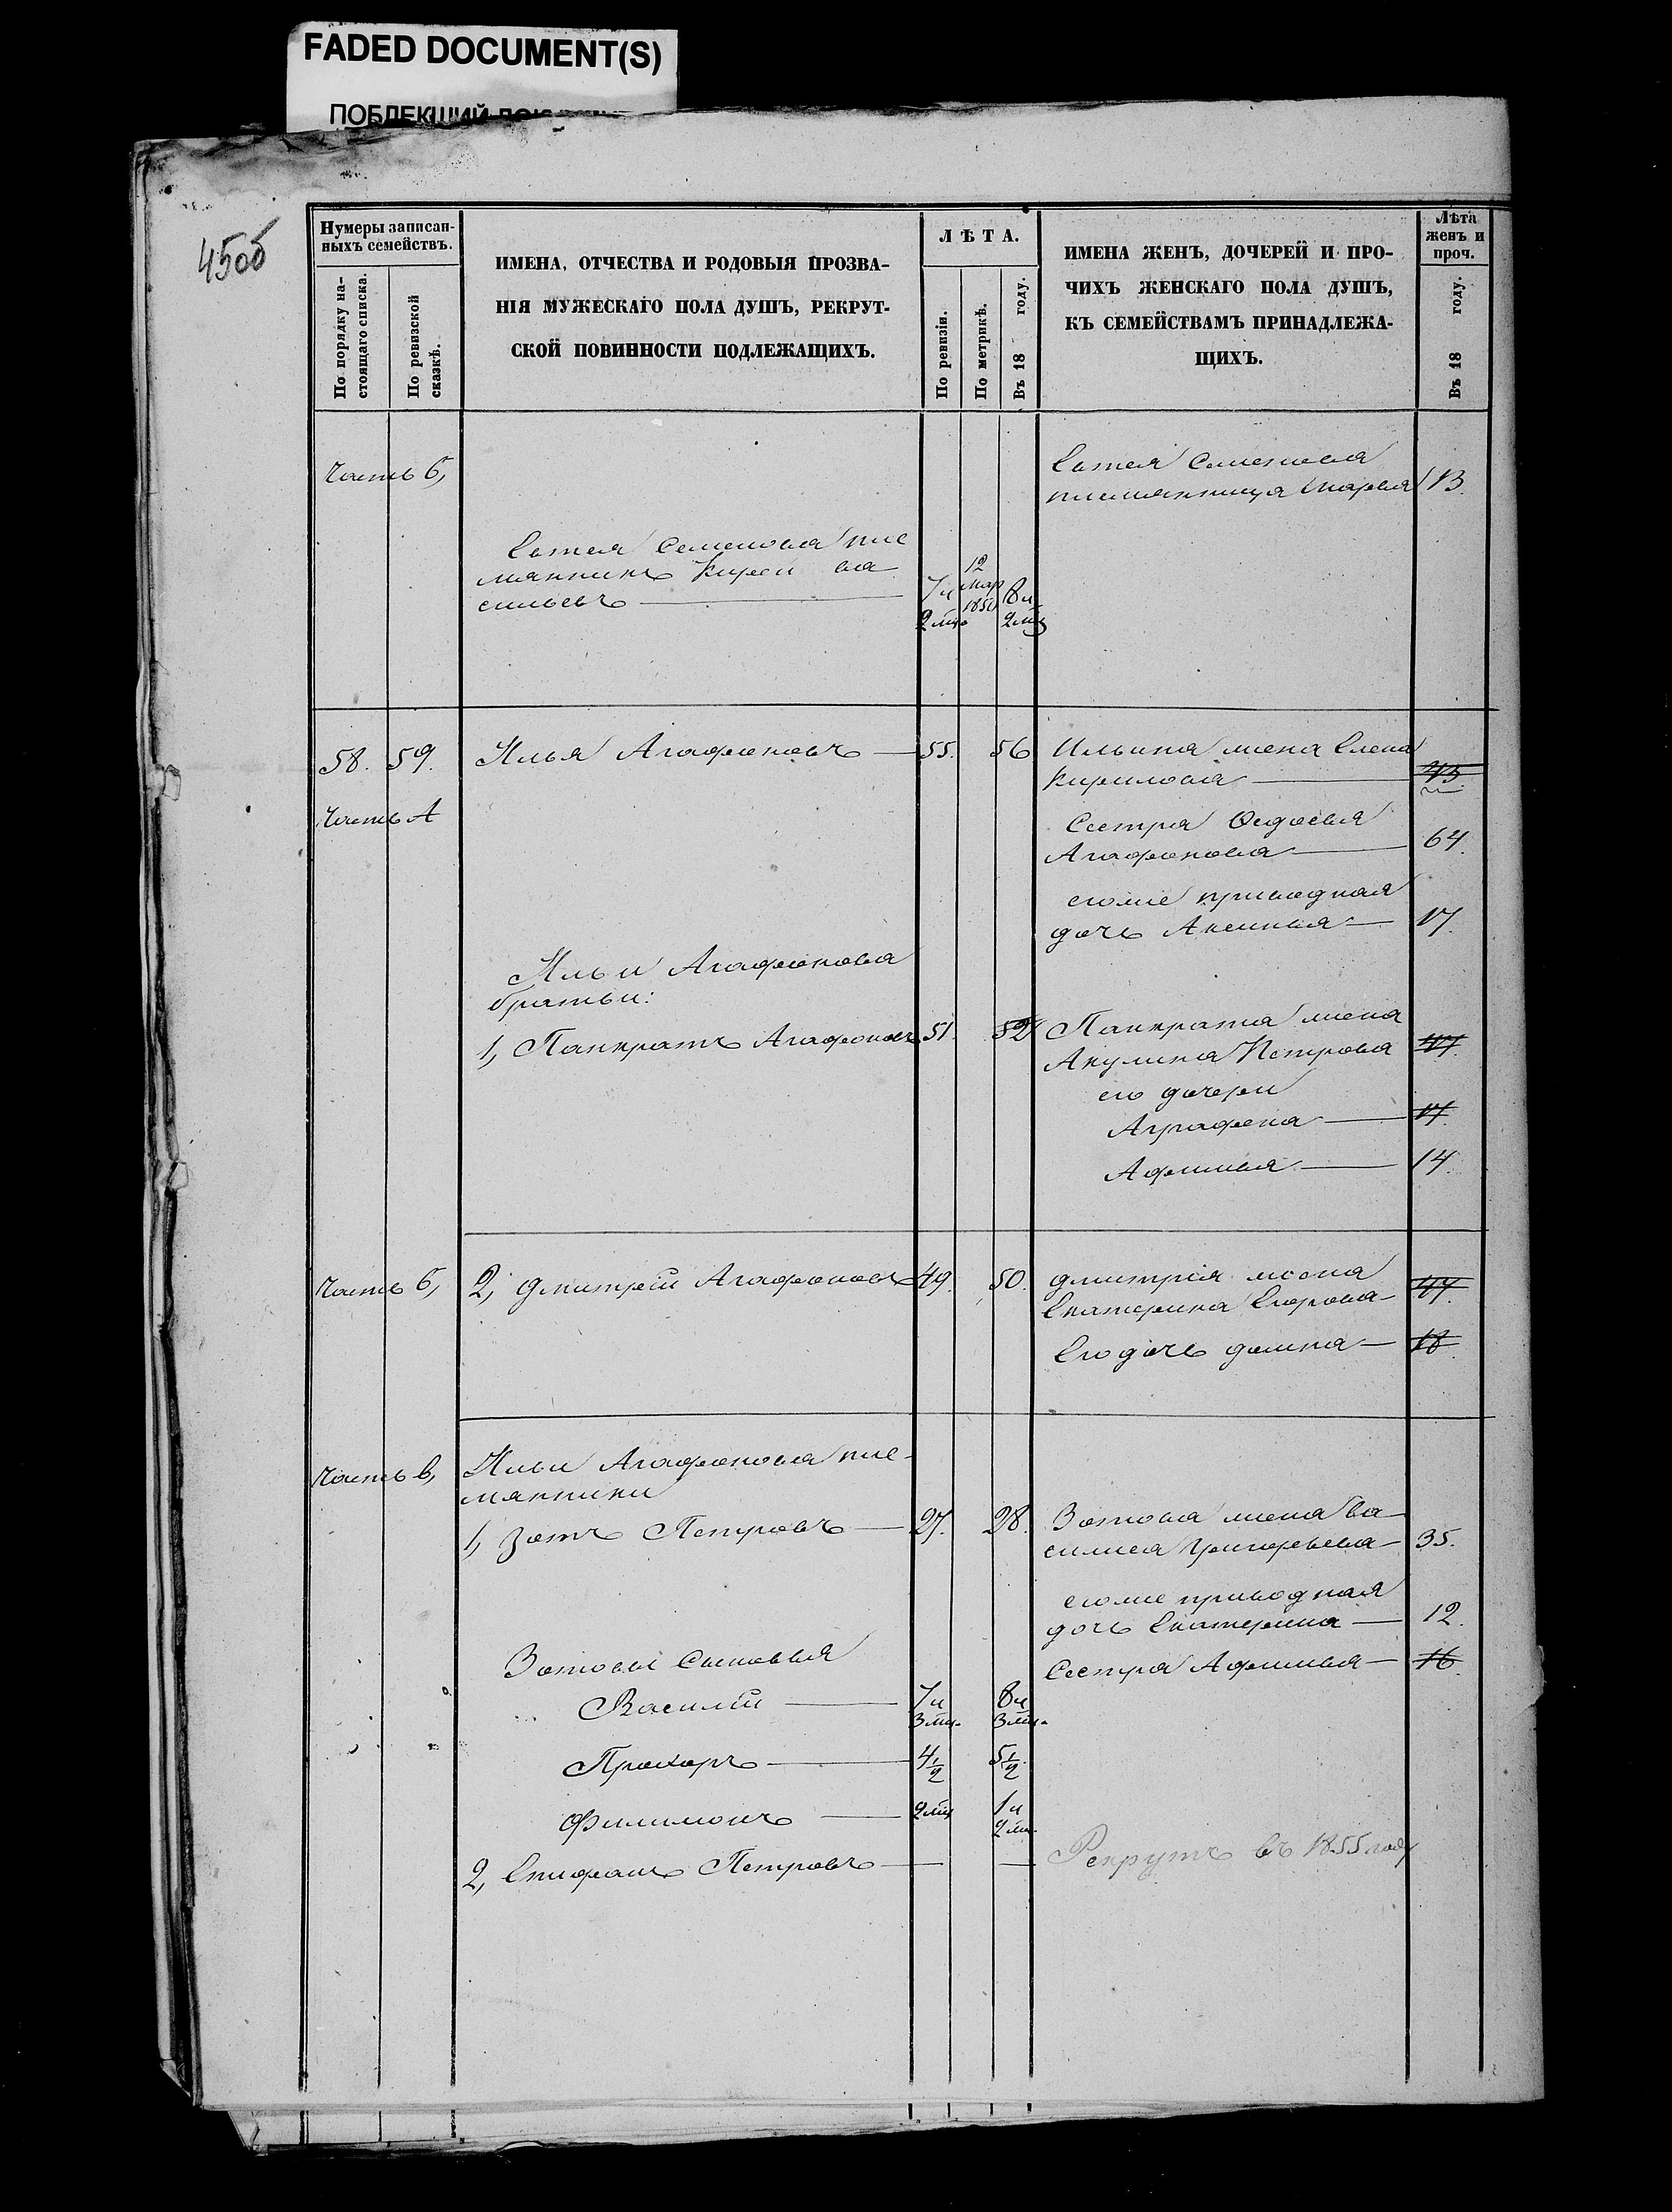 FADED DOCUMENT(S)
45об
Нумеры записан-
ныхъ семействъ.
По порядку на-
стоящаго списка.
По ревизской
сказкѣ.
ИМЕНА, ОТЧЕСТВА И РОДОВЫЯ ПРОЗВА-
НІЯ МУЖЕСКАГО ПОЛА ДУШЪ, РЕКРУТ-
СКОЙ ПОВИННОСТИ ПОДЛЕЖАЩИХЪ.
ЛѢТА.
По ревизіи.
По метрикѣ.
Въ 18 году.
ИМЕНА ЖЕНЪ, ДОЧЕРЕЙ И ПРО-
ЧИХЪ ЖЕНСКАГО ПОЛА ДУШЪ,
КЪ СЕМЕЙСТВАМЪ ПРИНАДЛЕЖА-
ЩИХЪ.
Лѣта
женъ и
проч.
Въ 18 году.
Часть б,
Семенова
племянница Марья 13.
Семенова пле
мянникъ ва
сильевъ 7 и 2 мц 12 мар 1850 8 и 2 мц
58. 59. Илья Агафоновъ 55. 56 Ильина жена Елена
Кирилова 45
Часть А
Сестра Федосья
Агафонова 64.
его же приводная
дочь Аксинья 17.
Ильи Агафонова
братьи:
1, Панкратъ Агафоновъ 51. 52 Панкрата жена
Акулина Петрова 47.
его дочери
Аграфена 17.
Афимья 14.
Часть б, 2, Дмитрей Агафоновъ 49. 50. Дмитрія жена
Екатерина Егорова 47.
Его дочь Домна 18
Часть в, Ильи Агафонова пле-
мянники
1, Зотъ Петровъ 27. 28. Зотова жена Ва
силиса Григорьева 35.
его же приводная
дочь Екатерина 12.
Зотовы Сыновья
Сестра Афимья 16.
Василій 7 и 3 мц. 8 и 3 мц.
Прохоръ 4 1/2 5 1/2
Филимонъ 2 мц 1 и 2 мц.
2, Епифанъ Петровъ Рекрутъ въ 1855 году